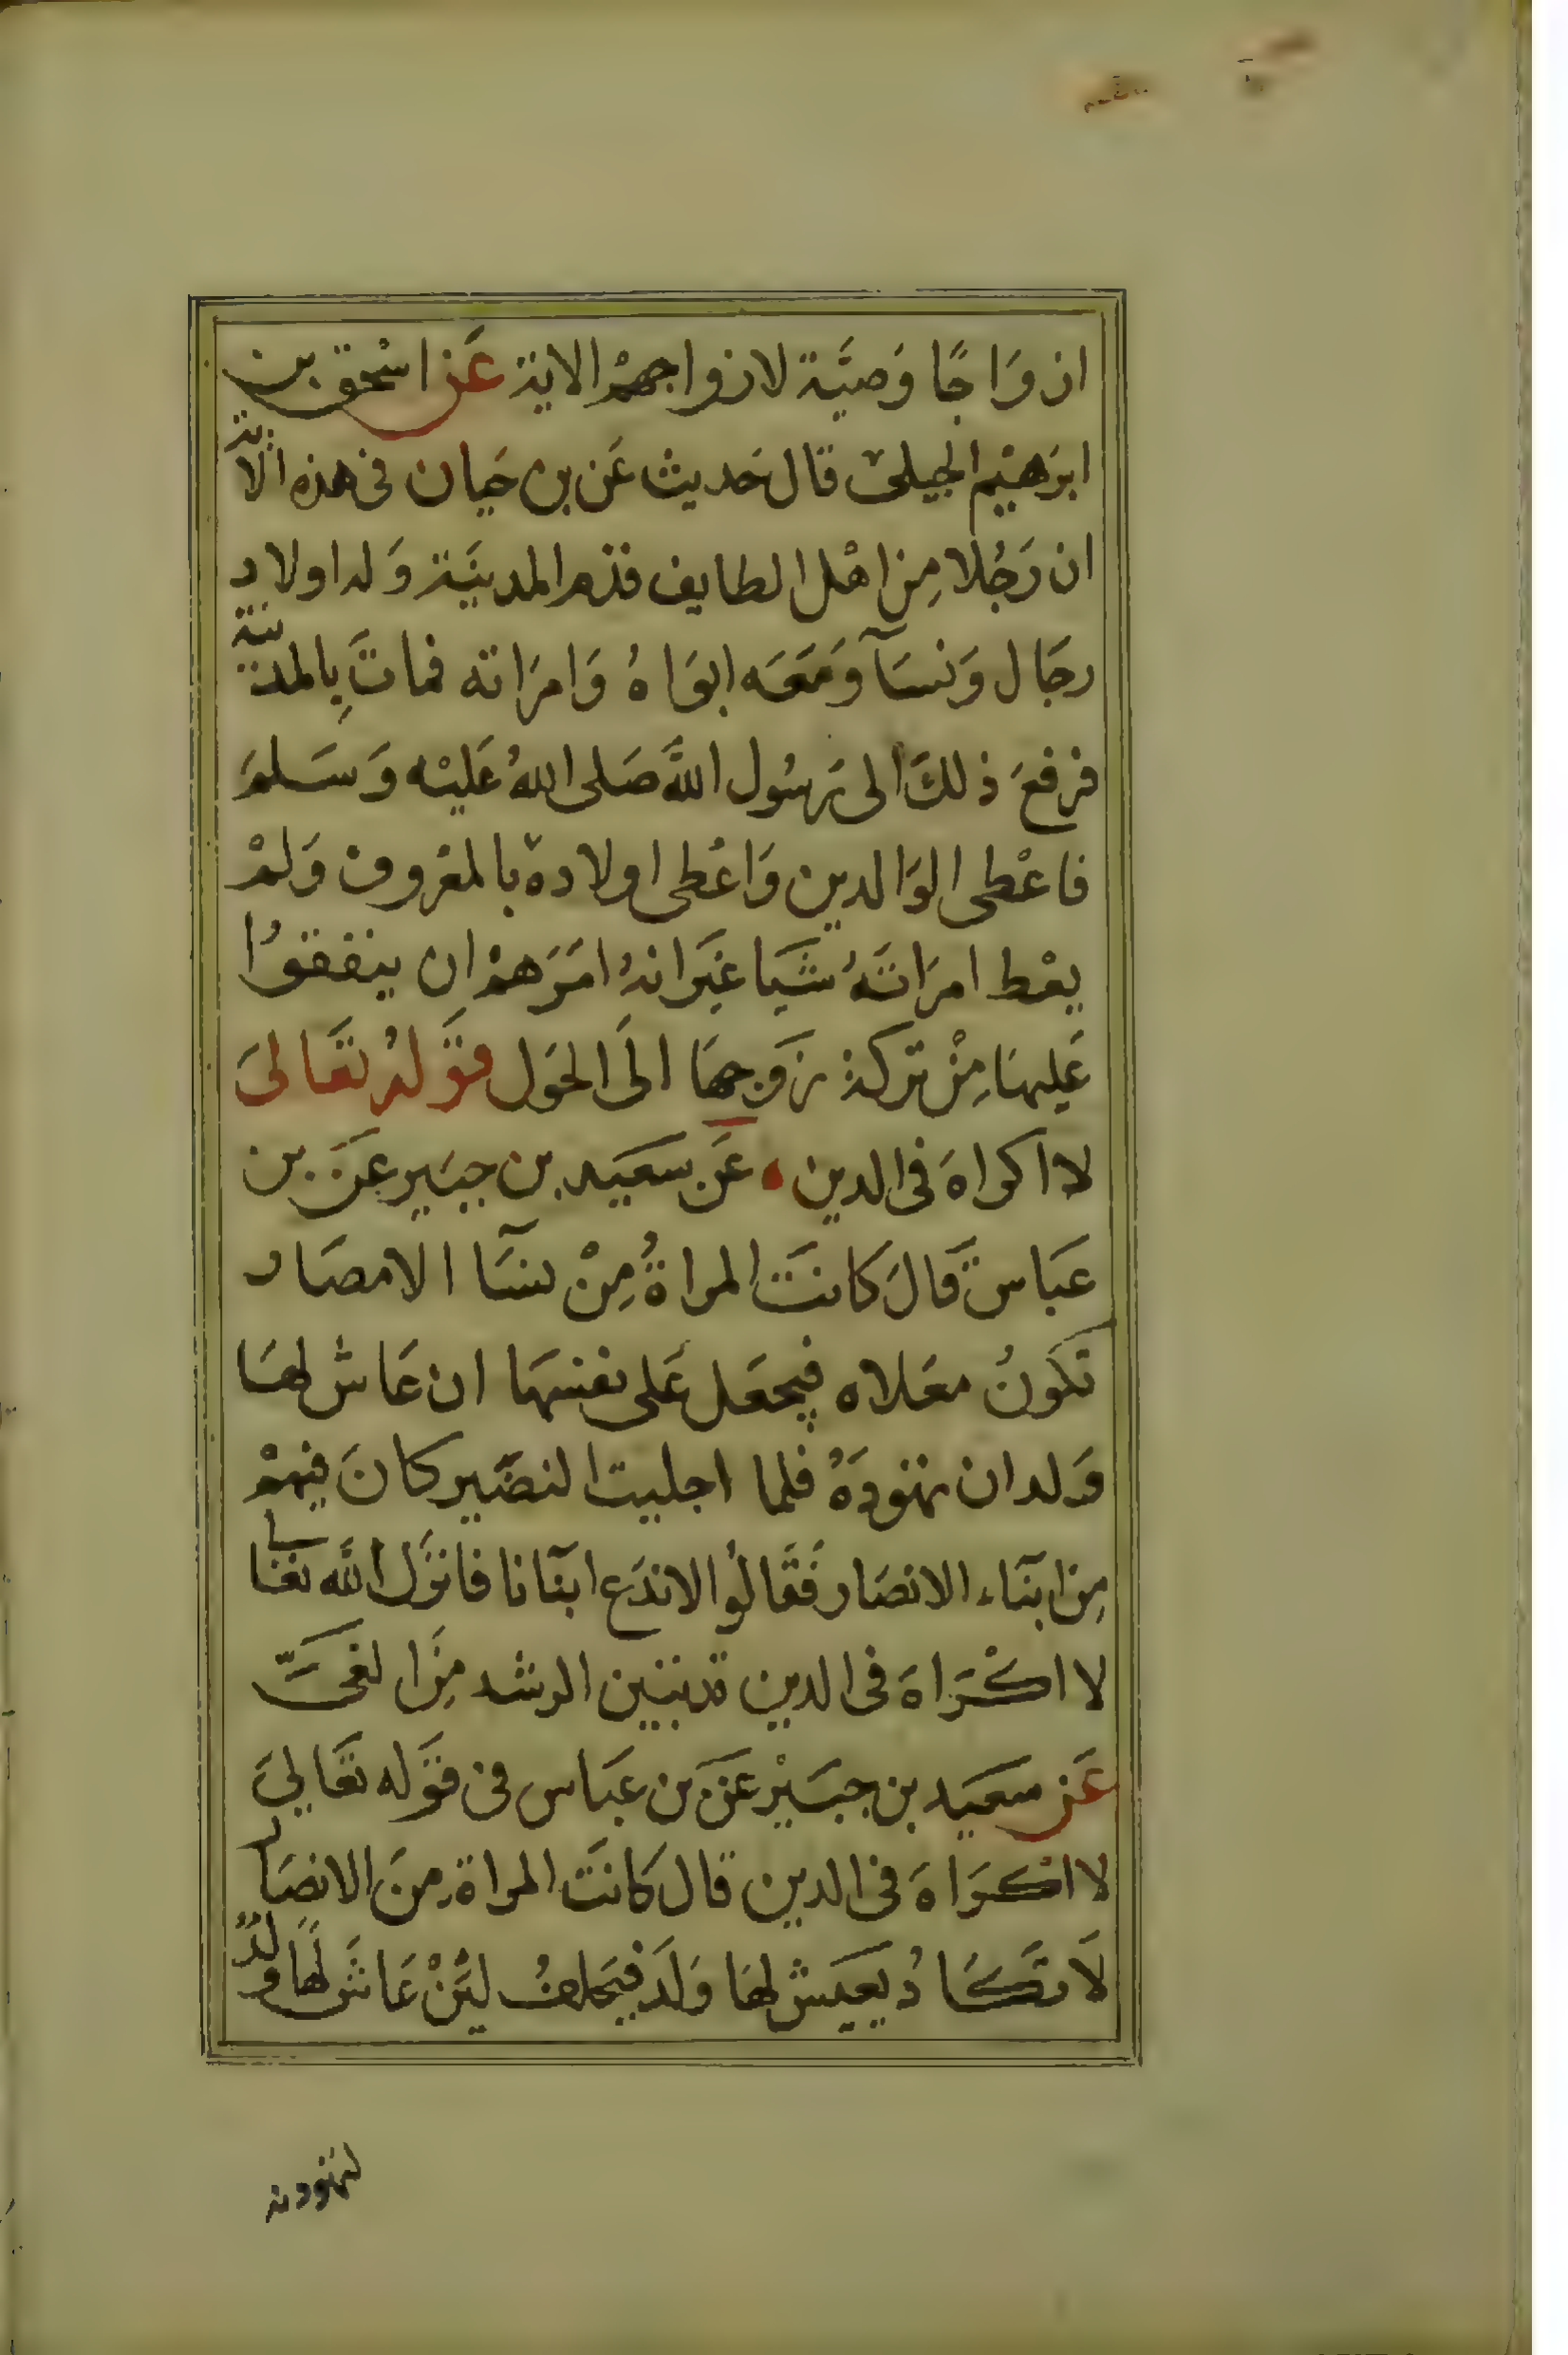 ازوَاجًا وَصيَّة لازواجهمْ الاية عَن اسْحق بن
ابرَهيْم الجيلى قال حَديث عَن بن حَيان فى هذه الاية
ان رَجُلا مِن اهْل الطايف قدم المدينَة وَله اولاد
رجَال وَنسَآ وَمَعَه ابوَاهُ وَامرَاته فماتَ بِالمدينة
فرفعَ ذلكَ الى رَسُول اللَّه صَلى اللهُ عَليْه وَسَلمَ
فاعْطى الوَالدين وَاعْطى اولادهُ بالمعْروف وَلمْ
يعْط امرَاتَهُ شَيا غيَر انهُ امَرَهمْ ان ينفقوُا
عَليهَا مِنْ تركة زَوجهَا الَى الحَول قوَلهُ تعَالىَ
لا اكراهَ فى الدين ، عَن سعَيد بن جبيَر عَن بن
عَباس قَالَ كانتَ المراةُ مِنْ نسَآ الامصَار
تكونُ مقلاه فيجعَل عَلى نفسهَا ان عَاش لهَا
وَلد ان تهودَهُ فلما اجليت النضَير كانَ فيهمْ
مِن ابنَآء الانصَار فَقَالوُا لاندَع ابنَآنا فانزَل اللَّه تعَالى
لا اكْرَاهَ فى الدين قد تبين الرشد مِنَ الغىَّ
عَن سعَيد بن جبَيْر عَن بن عَباس فى قوَله تعَالىَ
لا اكرَاهَ فى الدين قال كانتَ المراة مِنَ الانصَار
لَا تكَادُ يعيَش لهَا وَلَد فيَحلفُ لئِنْ عَاشَ لهَا ولدٌ
لتهودنه